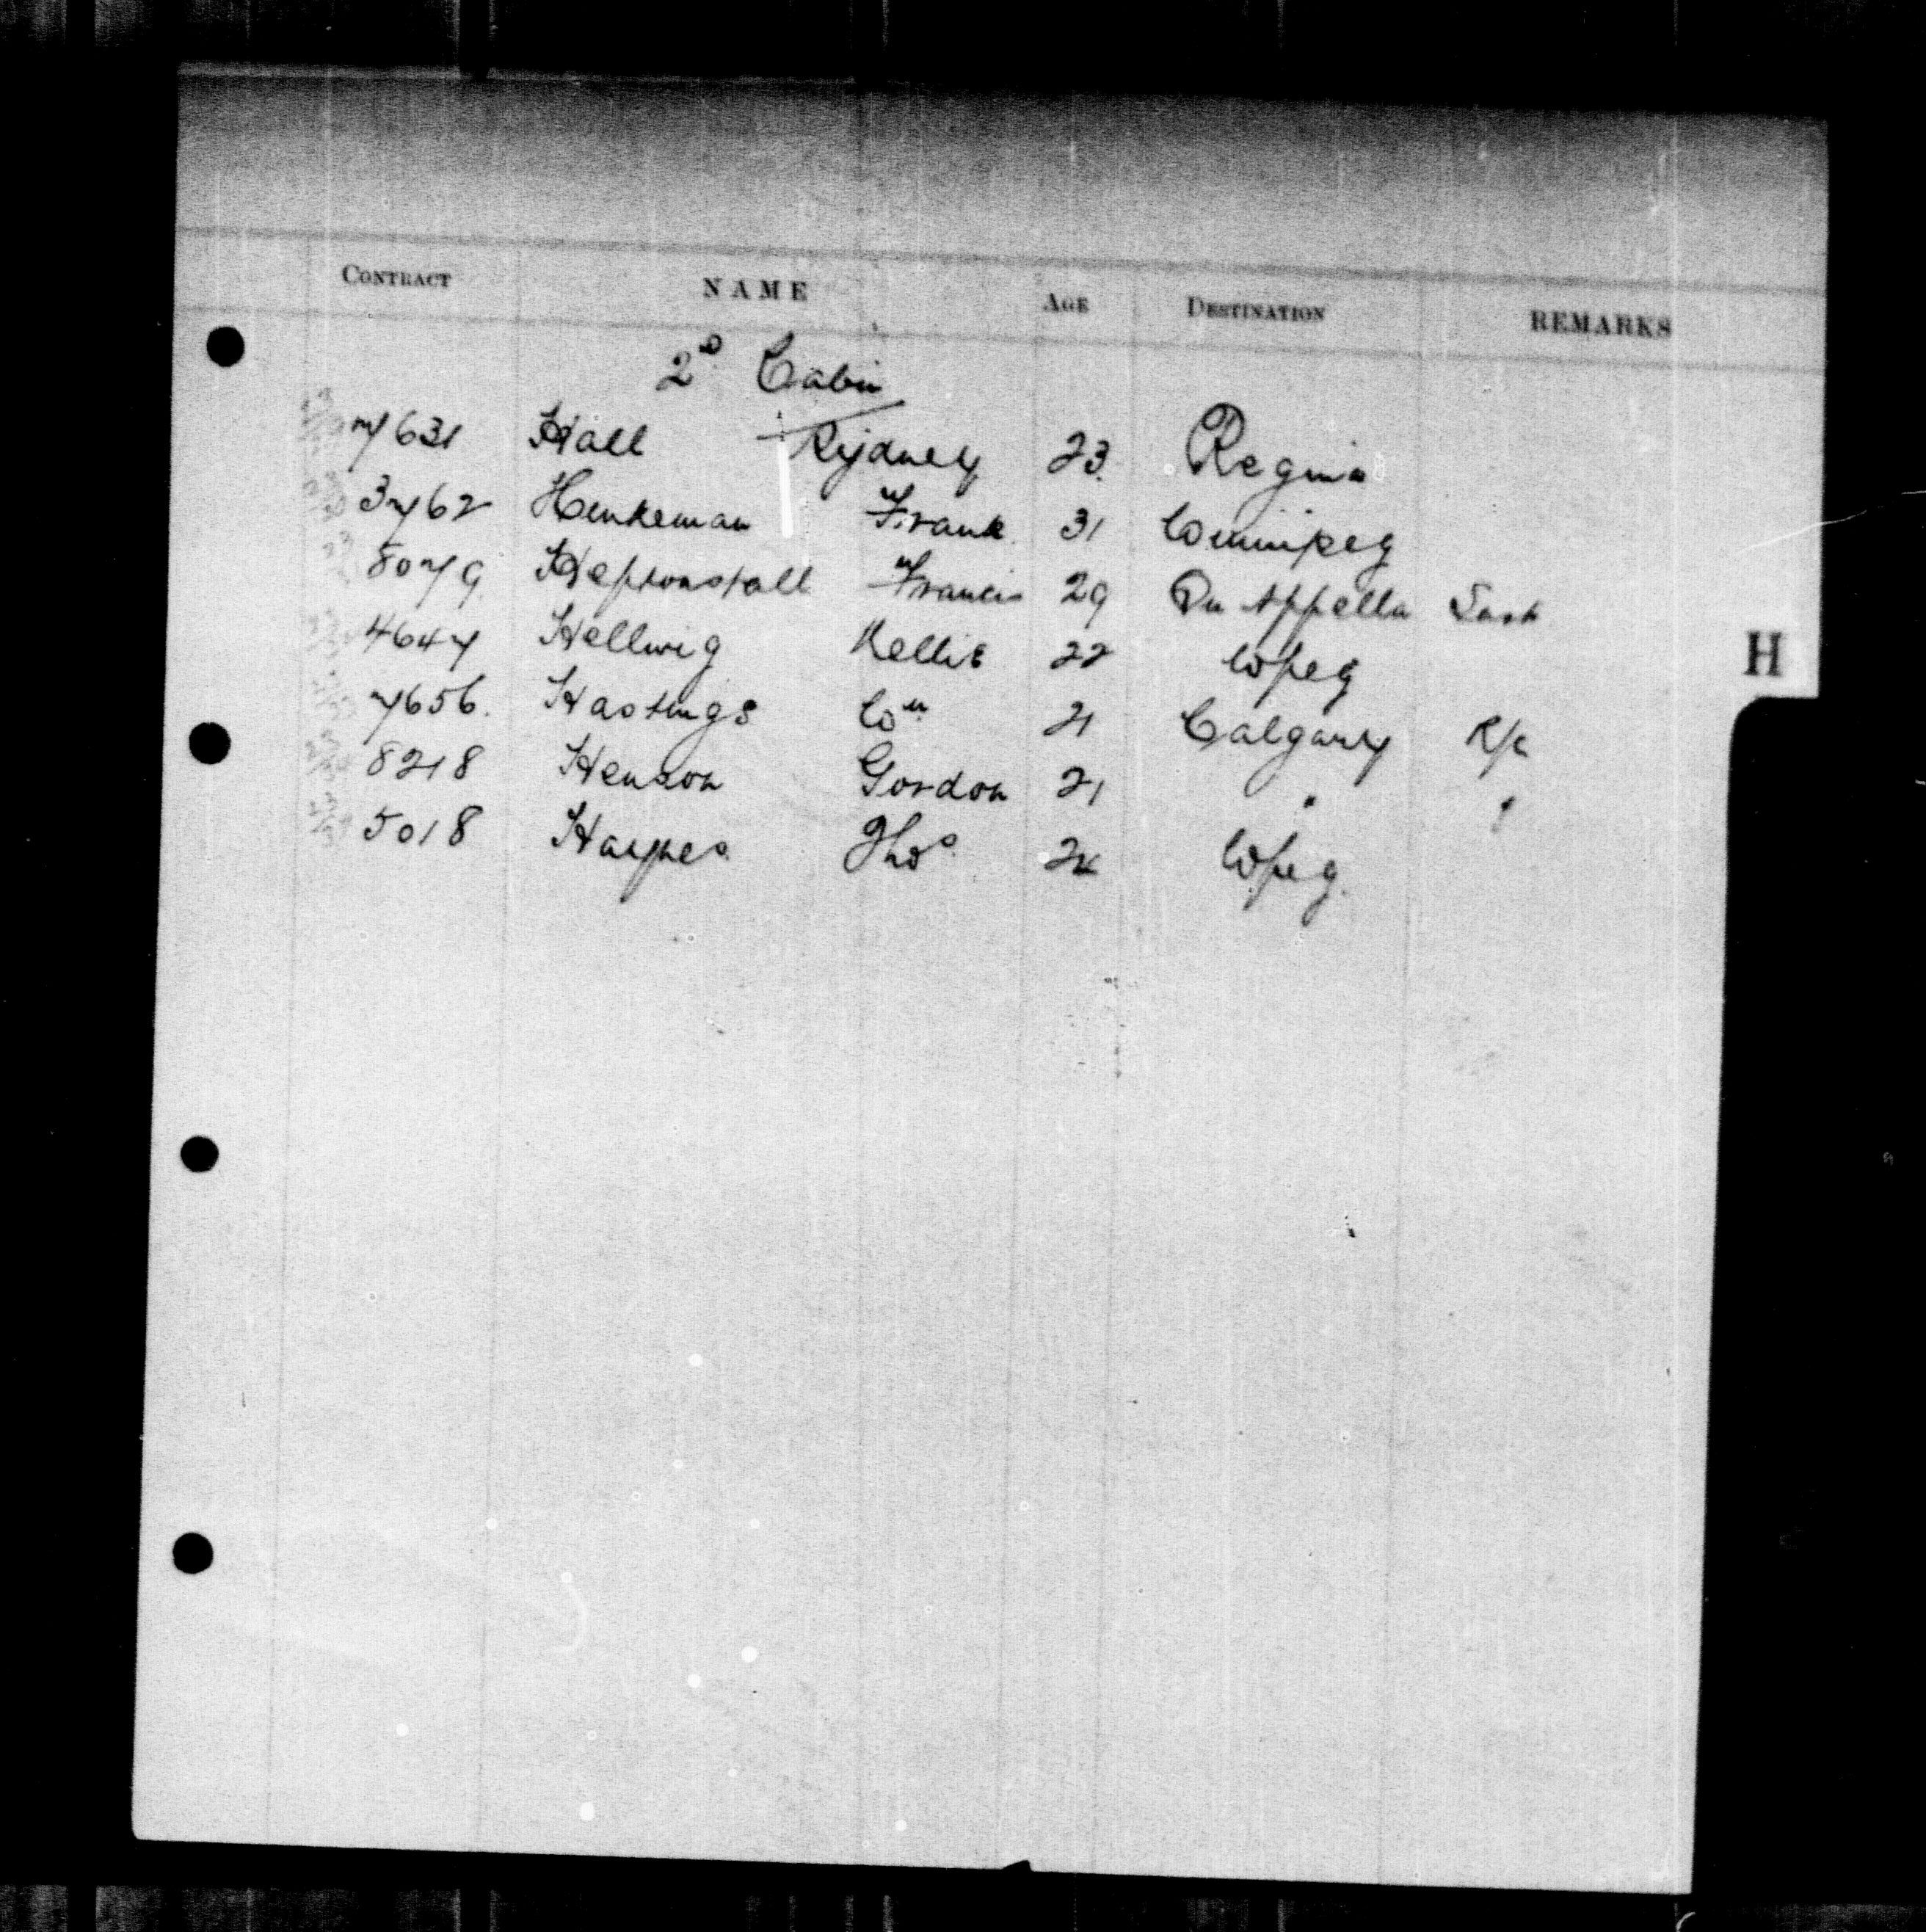 CONTRACT NAME AGE DESTINATION REMARKS
2D Cabin
7631 Hall Rydney 23 Regina
3762 Henkeman Frank 31 Winnipeg
8079 Heptonstall Francis 29 Qu Appella Sask
4647 Hellwig Nellie 22 Wpeg
H
7656 Hastings Wm 21 Calgary R/c
8218 Henson Gordon 21 " "
5018 Thos 24 Wpeg